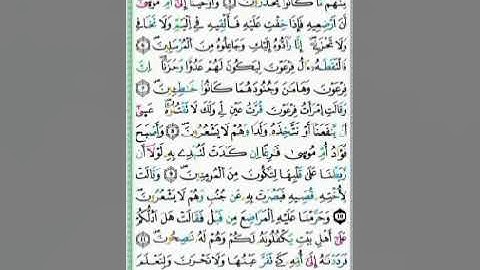 مِنْهُم مَّا كَانُوا۟ يَحْذَرُونَ ۝٦ وَأَوْحَيْنَآ إِلَىٰٓ أُمِّ مُوسَىٰٓ
أَنْ أَرْضِعِيهِ فَإِذَا خِفْتِ عَلَيْهِ فَأَلْقِيهِ فِى ٱلْيَمِّ وَلَا تَخَافِى
وَلَا تَحْزَنِىٓ إِنَّا رَآدُّوهُ إِلَيْكِ وَجَاعِلُوهُ مِنَ ٱلْمُرْسَلِينَ ۝٧
فَٱلْتَقَطَهُۥٓ ءَالُ فِرْعَوْنَ لِيَكُونَ لَهُمْ عَدُوًّا وَحَزَنًا إِنَّ
فِرْعَوْنَ وَهَامَانَ وَجُنُودَهُمَا كَانُوا۟ خَاطِـِٔينَ ۝٨
وَقَالَتِ ٱمْرَأَتُ فِرْعَوْنَ قُرَّتُ عَيْنٍ لِّى وَلَكَ لَا تَقْتُلُوهُ عَسَىٰٓ
أَن يَنفَعَنَآ أَوْ نَتَّخِذَهُۥ وَلَدًا وَهُمْ لَا يَشْعُرُونَ ۝٩ وَأَصْبَحَ
فُؤَادُ أُمِّ مُوسَىٰ فَـٰرِغًا إِن كَادَتْ لَتُبْدِى بِهِۦ لَوْلَآ أَن
رَّبَطْنَا عَلَىٰ قَلْبِهَا لِتَكُونَ مِنَ ٱلْمُؤْمِنِينَ ۝١٠ وَقَالَتْ
لِأُخْتِهِۦ قُصِّيهِ فَبَصُرَتْ بِهِۦ عَن جُنُبٍ وَهُمْ لَا يَشْعُرُونَ
۝١١ وَحَرَّمْنَا عَلَيْهِ ٱلْمَرَاضِعَ مِن قَبْلُ فَقَالَتْ هَلْ أَدُلُّكُمْ
عَلَىٰٓ أَهْلِ بَيْتٍ يَكْفُلُونَهُۥ لَكُمْ وَهُمْ لَهُۥ نَـٰصِحُونَ ۝١٢
فَرَدَدْنَـٰهُ إِلَىٰٓ أُمِّهِۦ كَىْ تَقَرَّ عَيْنُهَا وَلَا تَحْزَنَ وَلِتَعْلَمَ